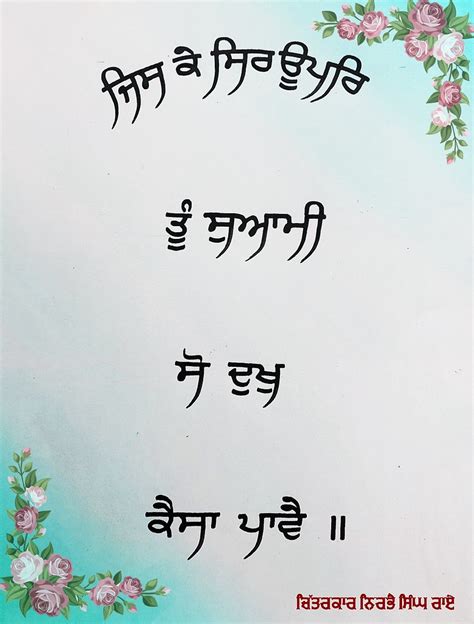 ਜਿਸ ਕੇ ਸਿਰ ਊਪਰਿ
ਤੂੰ ਸੁਆਮੀ
ਸੋ ਦੁਖੁ
ਕੈਸਾ ਪਾਵੈ ॥
ਚਿੱਤਰਕਾਰ ਨਿਰਭੈ ਸਿੰਘ ਰਾਏ